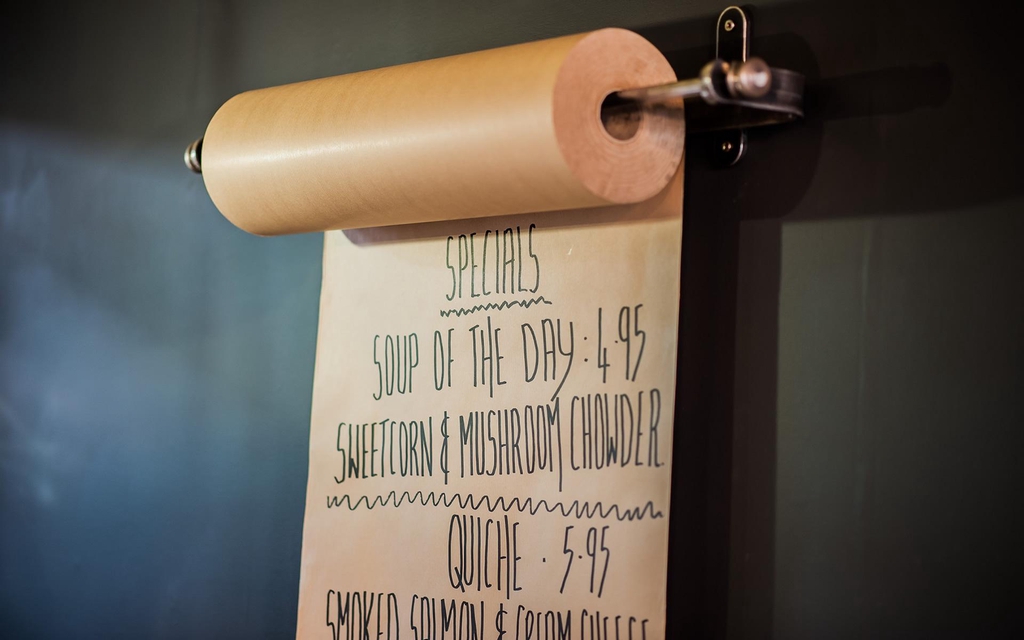 SPECIALS
SOUP OF THE DAY : 4.95
SWEETCORN & MUSHROOM CHOWDER.
QUICHE . 5.95
SMOKED SALMON & CREAM CHEESE